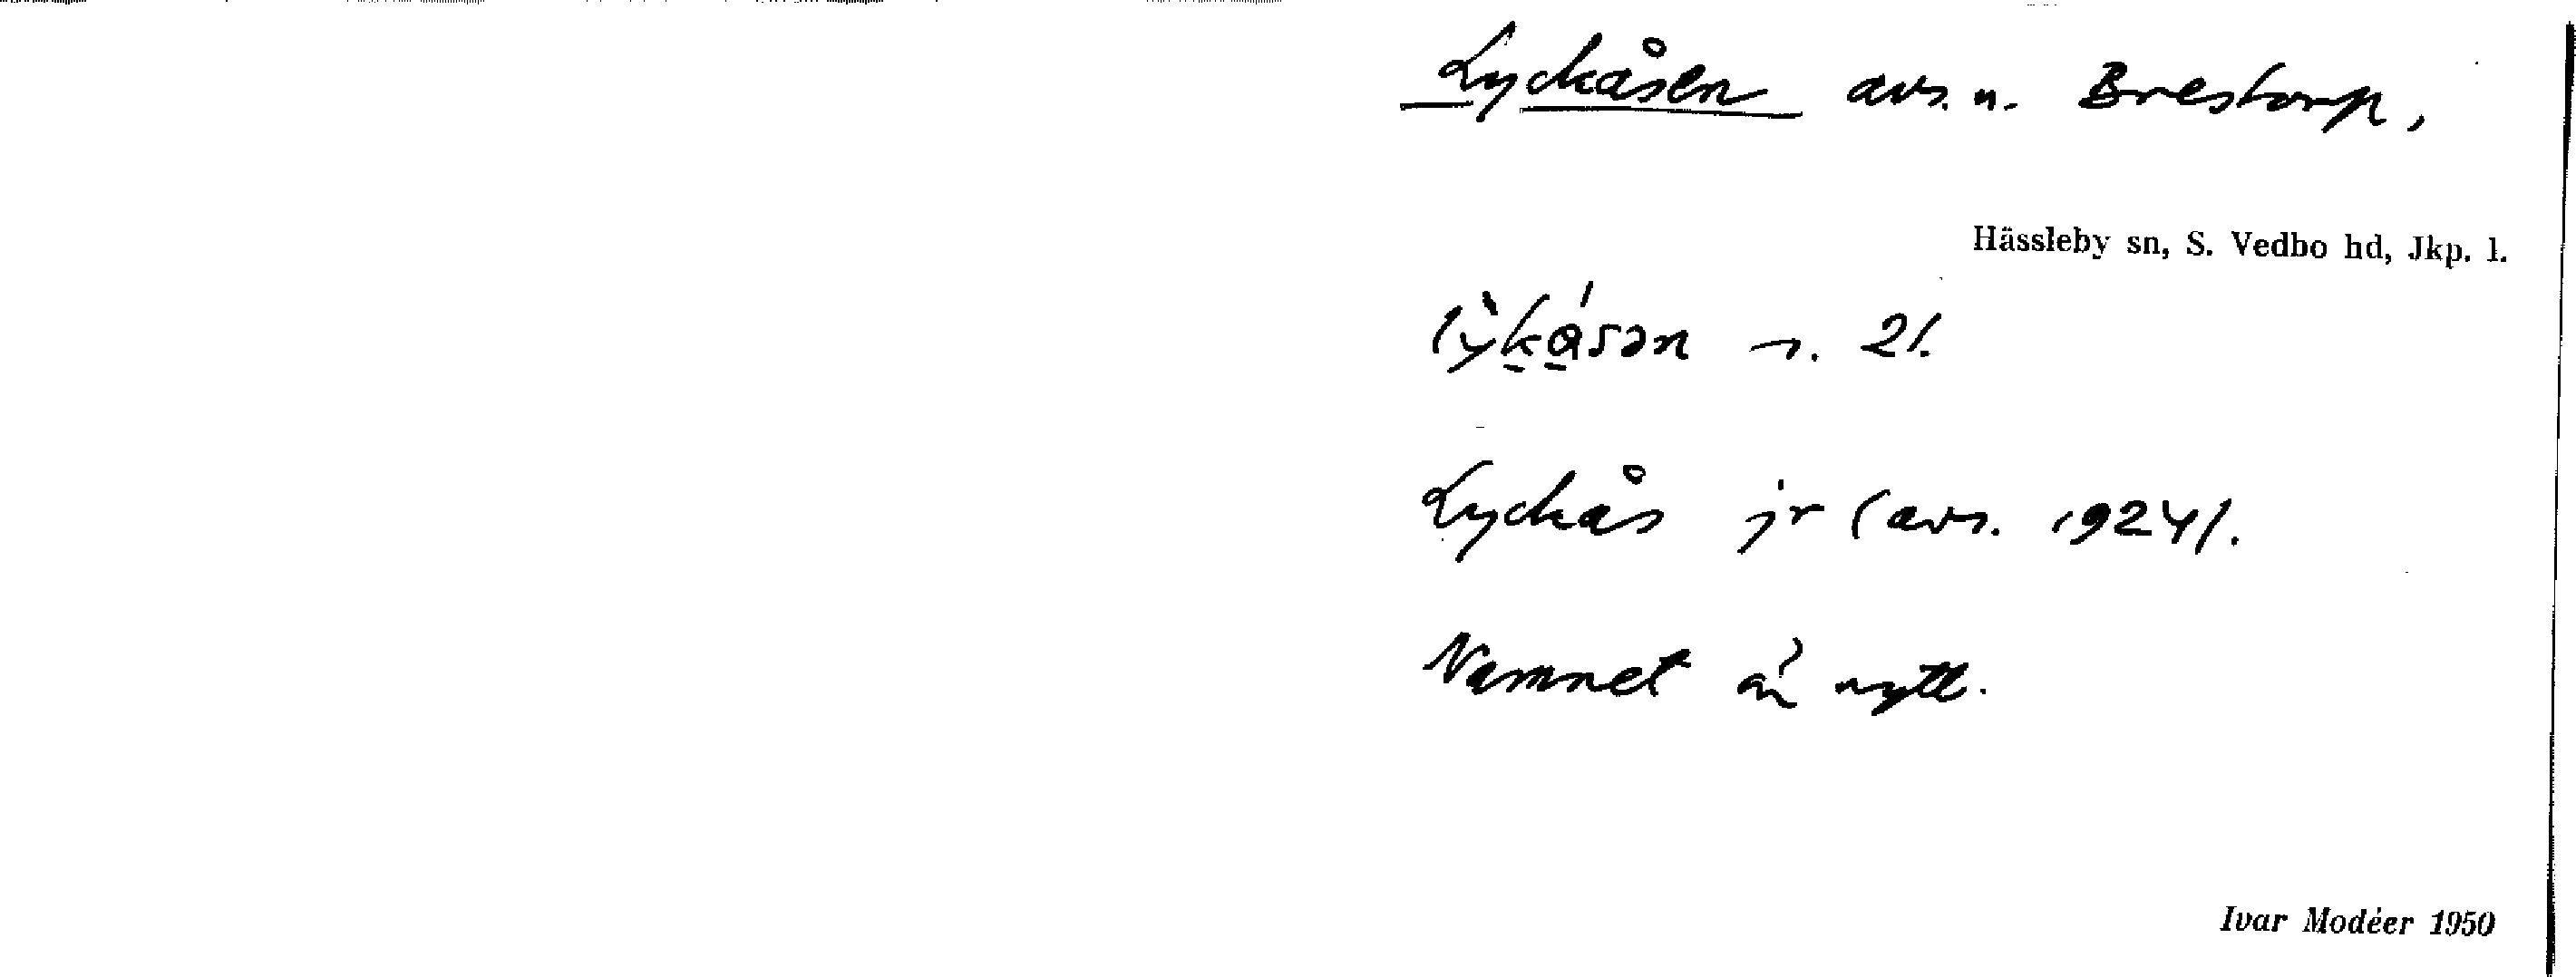 Lyckåsen avs. u. Brestorp,
Hässleby sn, S. Vedbo hd, Jkp. l.
lỳkåsən s. 21.
Lyckås jr (avs. 1924).
Namnet är nytt.
Ivar Modéer 1950